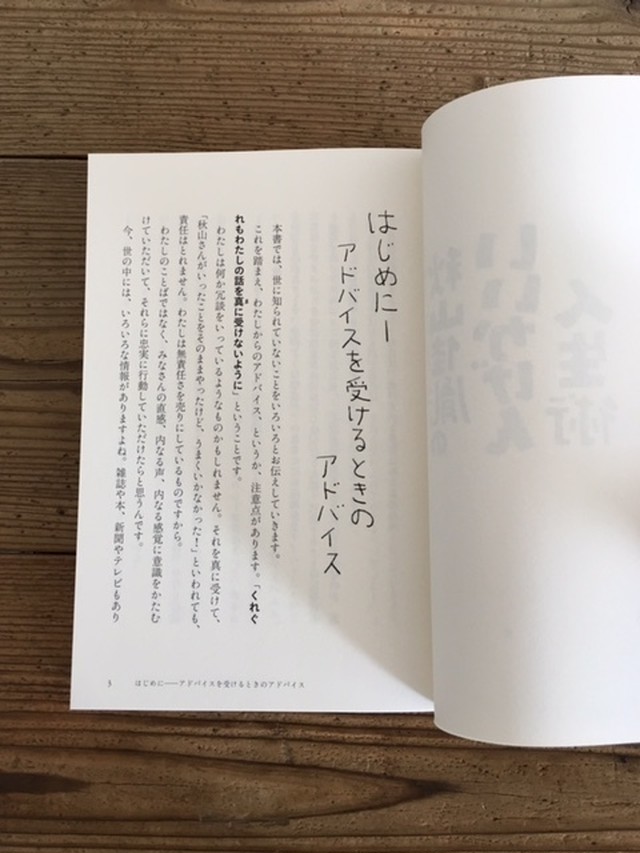 はじめにー
アドバイスを受けるときの
アドバイス
本書では、世に知られていないことをいろいろとお伝えしていきます。
これを踏まえ、わたしからのアドバイス、というか、注意点があります。「くれぐ
れもわたしの話を真に受けないように」ということです。
わたしは何か冗談をいっているようなものかもしれません。それを真に受けて、
「秋山さんがいったことをそのままやったけど、うまくいかなかった！」といわれても、
責任はとれません。わたしは無責任さを売りにしているものですから。
わたしのことばではなく、みなさんの直感、内なる声、内なる感覚に意識をかたむ
けていただいて、それらに忠実に行動していただけたらと思うんです。
今、世の中には、いろいろな情報がありますよね。雑誌や本、新聞やテレビもあり
5 はじめに――アドバイスを受けるときのアドバイス